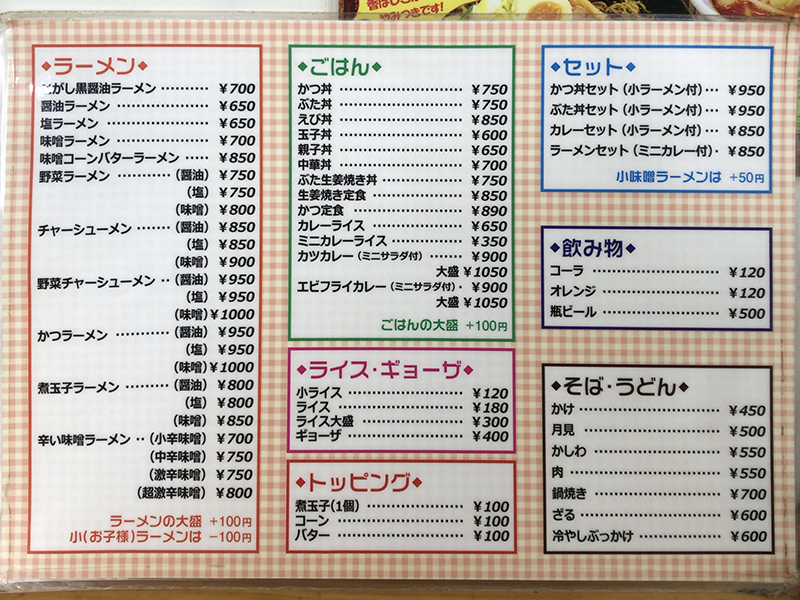 香ばしこが
◆ラーメン◆
こがし黒醤油ラーメン ………… ¥700
醤油ラーメン ………………… ¥650
塩ラーメン …………………… ¥650
味噌ラーメン ………………… ¥700
味噌コーンバターラーメン …… ¥850
野菜ラーメン ………(醤油) ¥750
(塩) ¥750
(味噌) ¥800
チャーシューメン ………(醤油) ¥850
(塩) ¥850
(味噌) ¥900
野菜チャーシューメン ‥(醤油) ¥950
(塩) ¥950
(味噌) ¥1000
かつラーメン …………(醤油) ¥950
(塩) ¥950
(味噌) ¥1000
煮玉子ラーメン ………(醤油) ¥800
(塩) ¥800
(味噌) ¥850
辛い味噌ラーメン ‥(小辛味噌) ¥700
(中辛味噌) ¥750
(激辛味噌) ¥750
(超激辛味噌) ¥800
ラーメンの大盛 +100円
小(お子様)ラーメンは -100円
◆ごはん◆
かつ丼 ……………………… ¥750
ぶた丼 ……………………… ¥750
えび丼 ……………………… ¥850
玉子丼 ……………………… ¥600
親子丼 ……………………… ¥650
中華丼 ……………………… ¥700
ぶた生姜焼き丼 …………… ¥750
生姜焼き定食 ……………… ¥850
かつ定食 …………………… ¥890
カレーライス ……………… ¥650
ミニカレーライス ………… ¥350
カツカレー(ミニサラダ付)… ¥900
大盛 ¥1050
エビフライカレー(ミニサラダ付)・ ¥900
大盛 ¥1050
ごはんの大盛 +100円
◆ライス・ギョーザ◆
小ライス …………………… ¥120
ライス ……………………… ¥180
ライス大盛 ………………… ¥300
ギョーザ …………………… ¥400
◆トッピング◆
煮玉子(1個) ……………… ¥100
コーン ……………………… ¥100
バター ……………………… ¥100
◆セット◆
かつ丼セット(小ラーメン付)… ¥950
ぶた丼セット(小ラーメン付)… ¥950
カレーセット(小ラーメン付)… ¥850
ラーメンセット(ミニカレー付)・ ¥850
小味噌ラーメンは +50円
◆飲み物◆
コーラ ……………………… ¥120
オレンジ …………………… ¥120
瓶ビール …………………… ¥500
◆そば・うどん◆
かけ ………………………… ¥450
月見 ………………………… ¥500
かしわ ……………………… ¥550
肉 …………………………… ¥550
鍋焼き ……………………… ¥700
ざる ………………………… ¥600
冷やしぶっかけ …………… ¥600